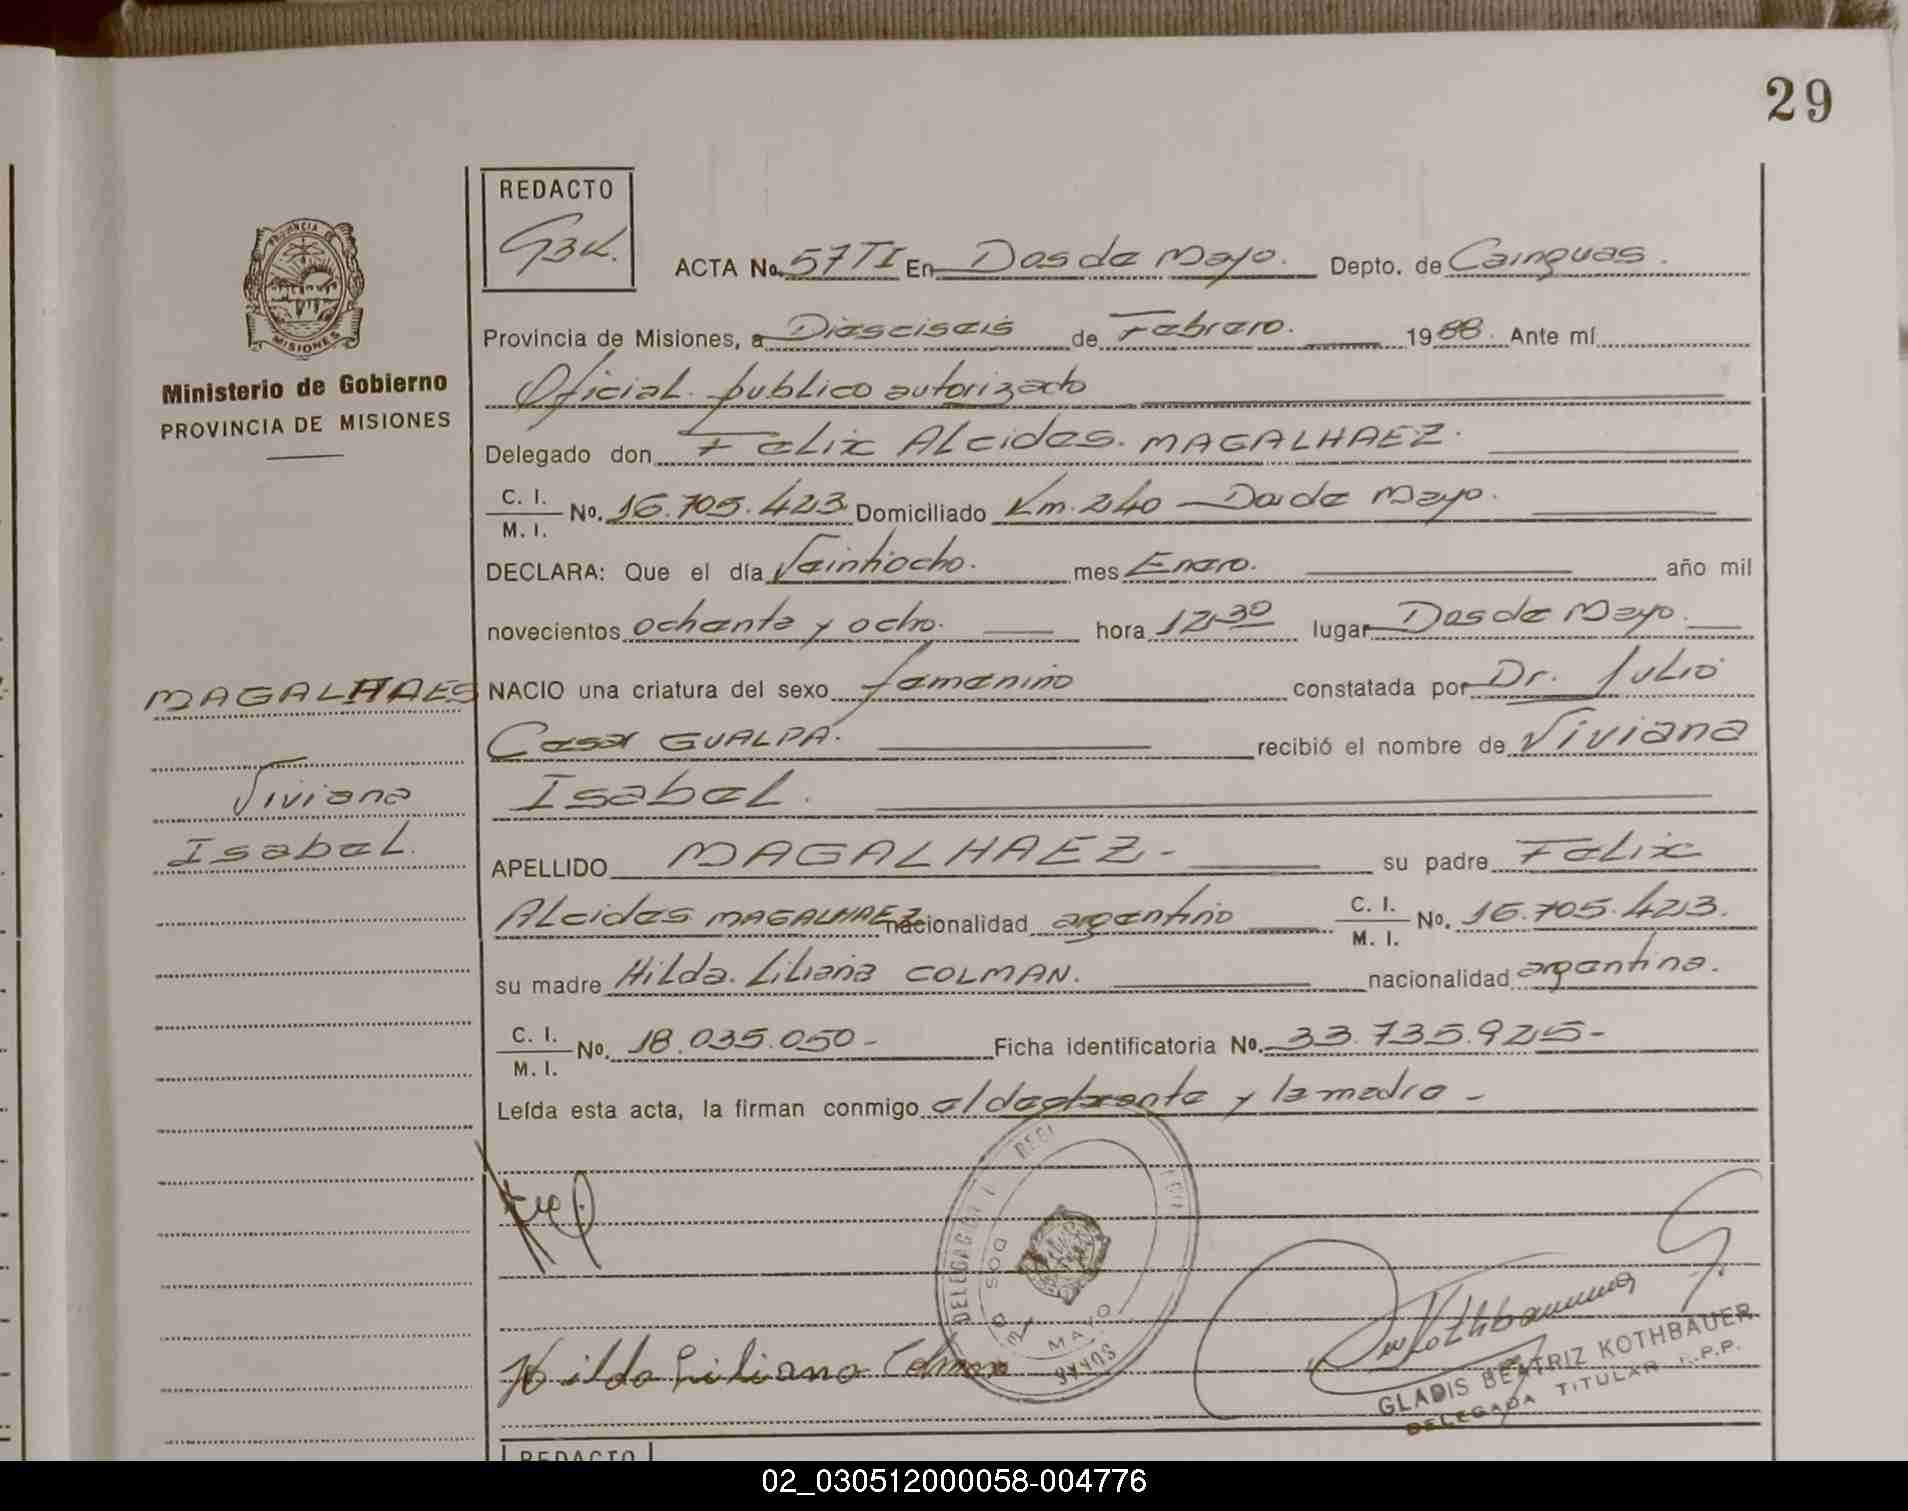 29
REDACTO
GBK.
PROVINCIA DE
MISIONES
Ministerio de Gobierno
PROVINCIA DE MISIONES
ACTA No. 57TI En Dos de Mayo. Depto. de Cainguas.
Provincia de Misiones, a Dieciseis de Febrero. 1988. Ante mí
Oficial publico autorizado
Delegado don Felix Alcides. MAGALHAEZ.
C. I. / M. I. No. 16.705.423. Domiciliado Km. 240 - Dos de Mayo.
DECLARA: Que el día Veintiocho. mes Enero. año mil
novecientos ochenta y ocho. hora 12,30 lugar Dos de Mayo.
MAGALHAES
NACIO una criatura del sexo femenino constatada por Dr. Julio
Cesar GUALPA. recibió el nombre de Viviana
Viviana
Isabel.
Isabel.
APELLIDO MAGALHAEZ- su padre Felix
Alcides MAGALHAEZ nacionalidad argentino C. I. / M. I. No. 16.705.423.
su madre Hilda. Liliana COLMAN. nacionalidad argentina.
C. I. / M. I. No. 18.035.050- Ficha identificatoria No. 33.735.925-
Leída esta acta, la firman conmigo el declarante y la madre -
DOS DE MAYO
Hilda Liliana Colman
Kothbauer
GLADIS BEATRIZ KOTHBAUER
DELEGADA TITULAR
REDACTO
02_030512000058-004776